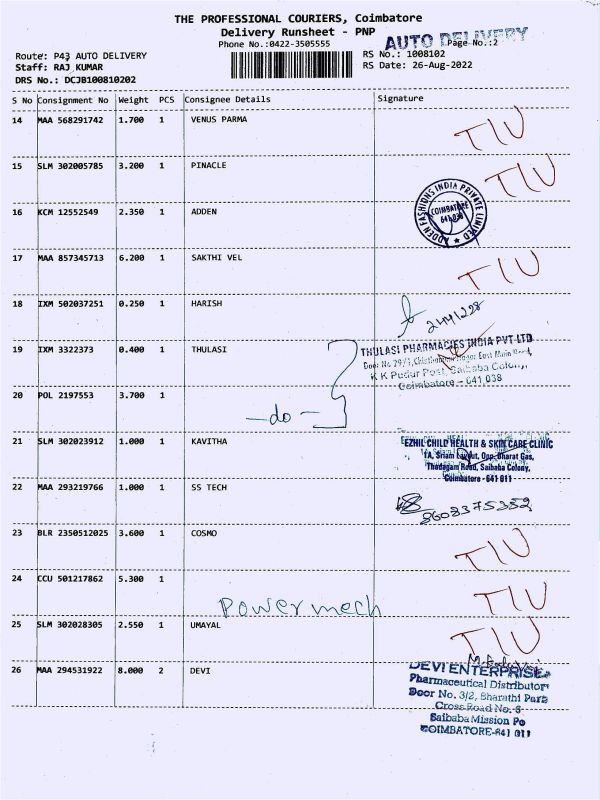 THE PROFESSIONAL COURIERS, Coimbatore
Delivery Runsheet - PNP
Phone No.:0422-3505555
AUTO DELIVERY
Page No.:2
Route: P43 AUTO DELIVERY
RS No.: 1008102
Staff: RAJ KUMAR
RS Date: 26-Aug-2022
DRS No.: DCJB100810202
S No Consignment No Weight PCS Consignee Details Signature
14 MAA 568291742 1.700 1 VENUS PARMA TIU
15 SLM 302005785 3.200 1 PINACLE TIU
16 KCM 12552549 2.350 1 ADDEN
ADDEN FASHIONS INDIA PRIVATE LIMITED
COIMBATORE
17 MAA 857345713 6.200 1 SAKTHI VEL TIU
18 IXM 502037251 0.250 1 HARISH
19 IXM 3322373 0.400 1 THULASI
THULASI PHARMACIES INDIA PVT LTD
K K Pudur Post, Saibaba Colony,
Coimbatore - 641 038
20 POL 2197553 3.700 1 -do-
21 SLM 302023912 1.000 1 KAVITHA
EZHIL CHILD HEALTH & SKIN CARE CLINIC
Opp. Bharat Gas,
Thadagam Road, Saibaba Colony,
Coimbatore - 641 011
22 MAA 293219766 1.000 1 SS TECH
8608375352
23 BLR 2350512025 3.600 1 COSMO TIU
24 CCU 501217862 5.300 1 Powermech TIU
25 SLM 302028305 2.550 1 UMAYAL TIU
26 MAA 294531922 8.000 2 DEVI
DEVI ENTERPRISES
Pharmaceutical Distributor
Door No. 3/2, Bharathi Park
Cross Road No. 6
Saibaba Mission Po
COIMBATORE-641 011